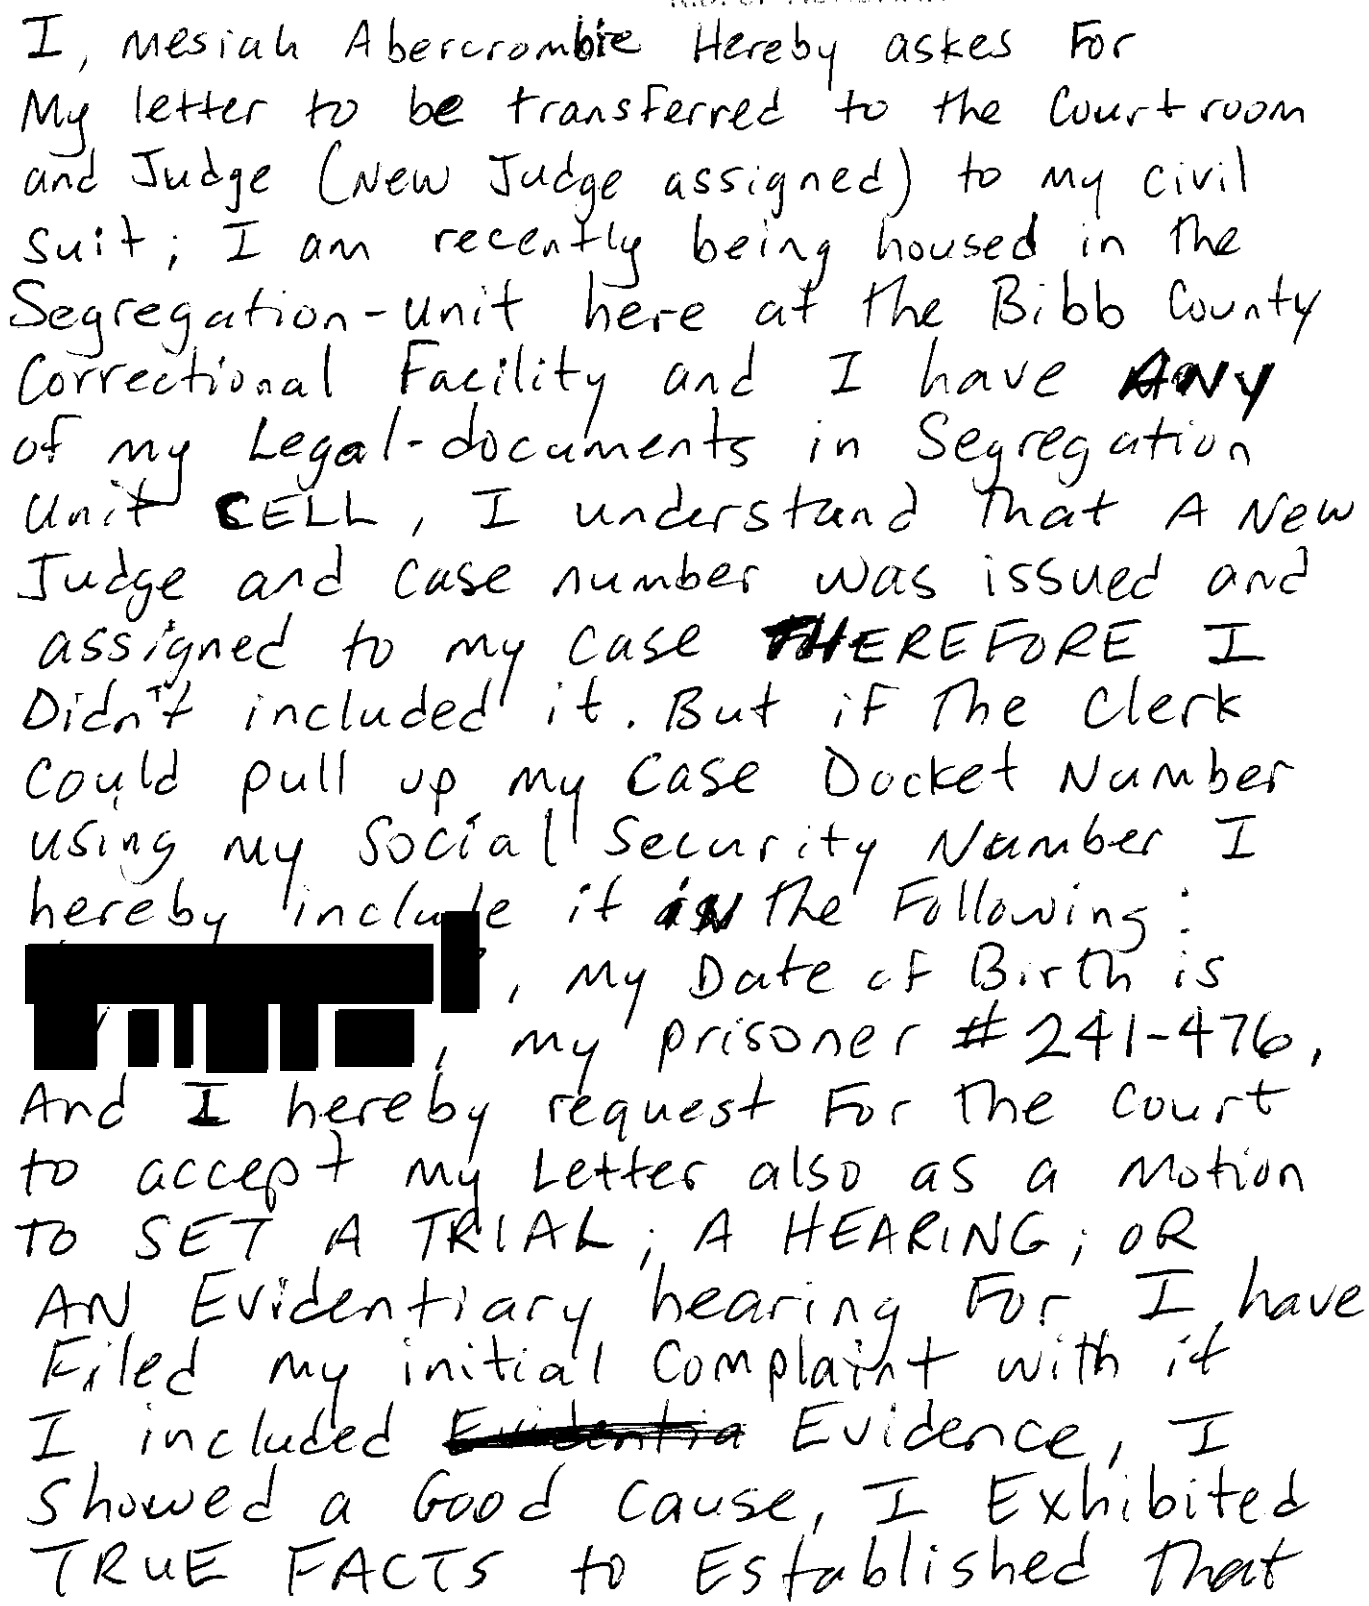 I, Mesiah Abercrombie Hereby askes For
My letter to be transferred to the Courtroom
and Judge (New Judge assigned) to my civil
suit; I am recently being housed in the
Segregation-unit here at the Bibb County
Correctional Facility and I have ANY
of my Legal-documents in Segregation
Unit CELL, I understand That A New
Judge and case number was issued and
assigned to my case THEREFORE I
Didn't included it. But if The Clerk
Could pull up my Case Docket Number
using my Social Security Number I
hereby include it iN the Following:
, my Date of Birth is
, my prisoner # 241-476,
And I hereby request For The Court
to accept my Letter also as a Motion
TO SET A TRIAL; A HEARING; OR
AN Evidentiary hearing For I have
Filed my initial Complaint with it
I included Evidentia Evidence, I
Showed a Good Cause, I Exhibited
TRUE FACTS to Established That